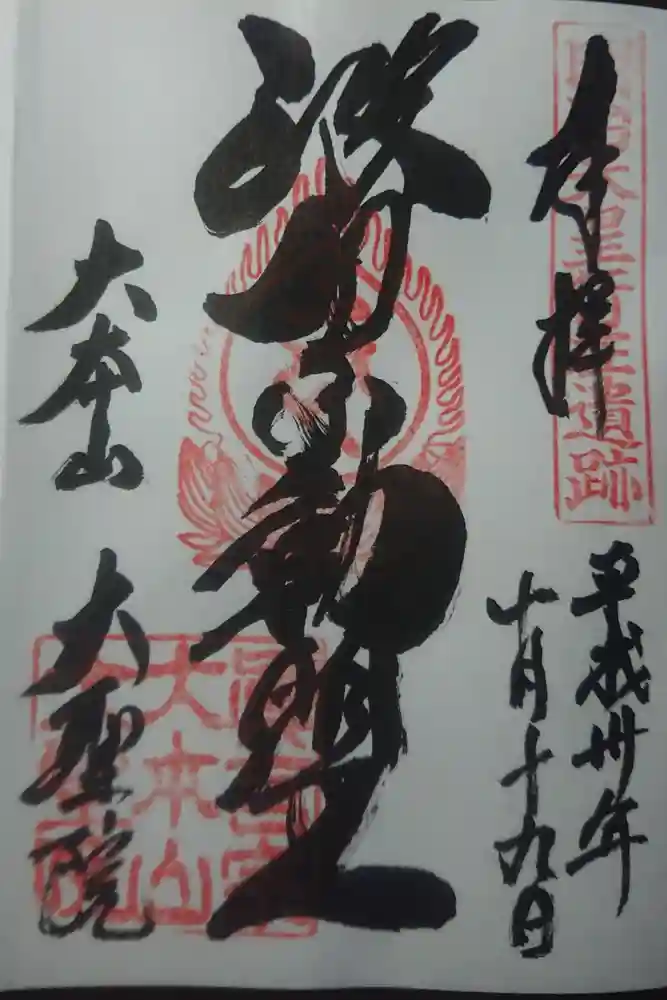 奉拝
明治天皇行在遺跡
平成卅年
十月十九日
波切不動明王
大本山
大本山 大聖院